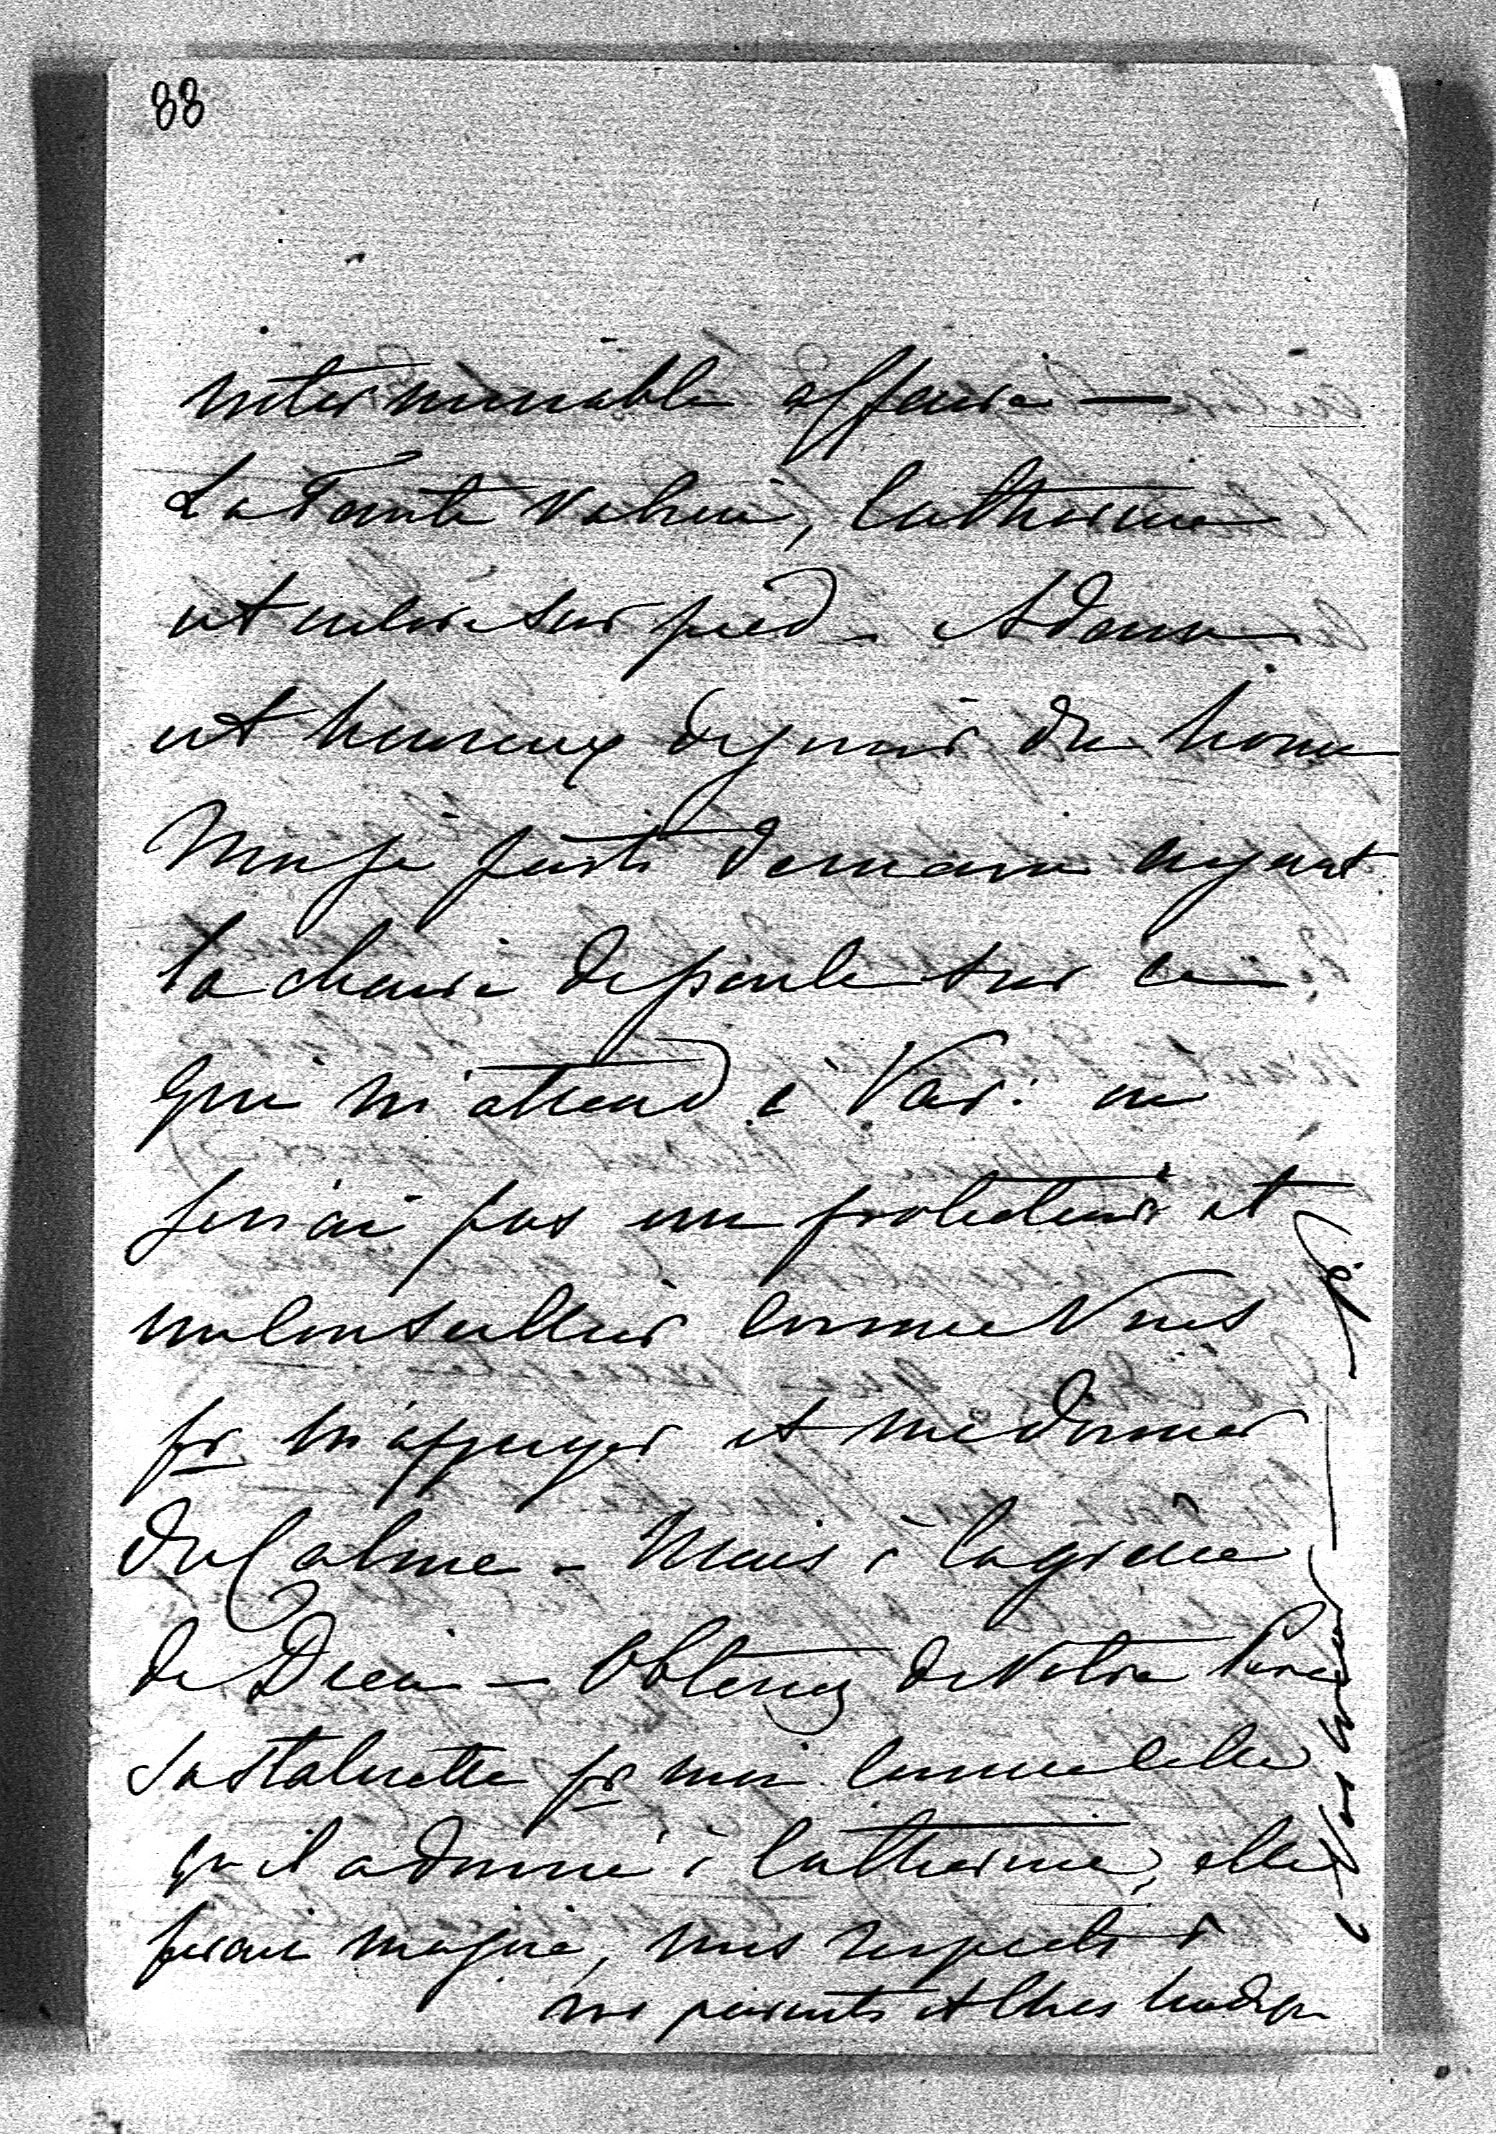 88
interminable affaire —
La Tante Valérie, Catherine
est entière sur pied — Adam
est heureux de jouir du home
Moi je pars demain ayant
la chair de poule sur ce
qui m'attend à Var: ne
serai pas un protecteur et
un conseiller comme Vous
pr m'appuyer et me donner
du Calme — Mais à la grâce
de Dieu — Obtenez de Votre Père
sa statuette pr moi comme celle
qu'il a donné à Catherine, elle
mes respects à
vos parents et